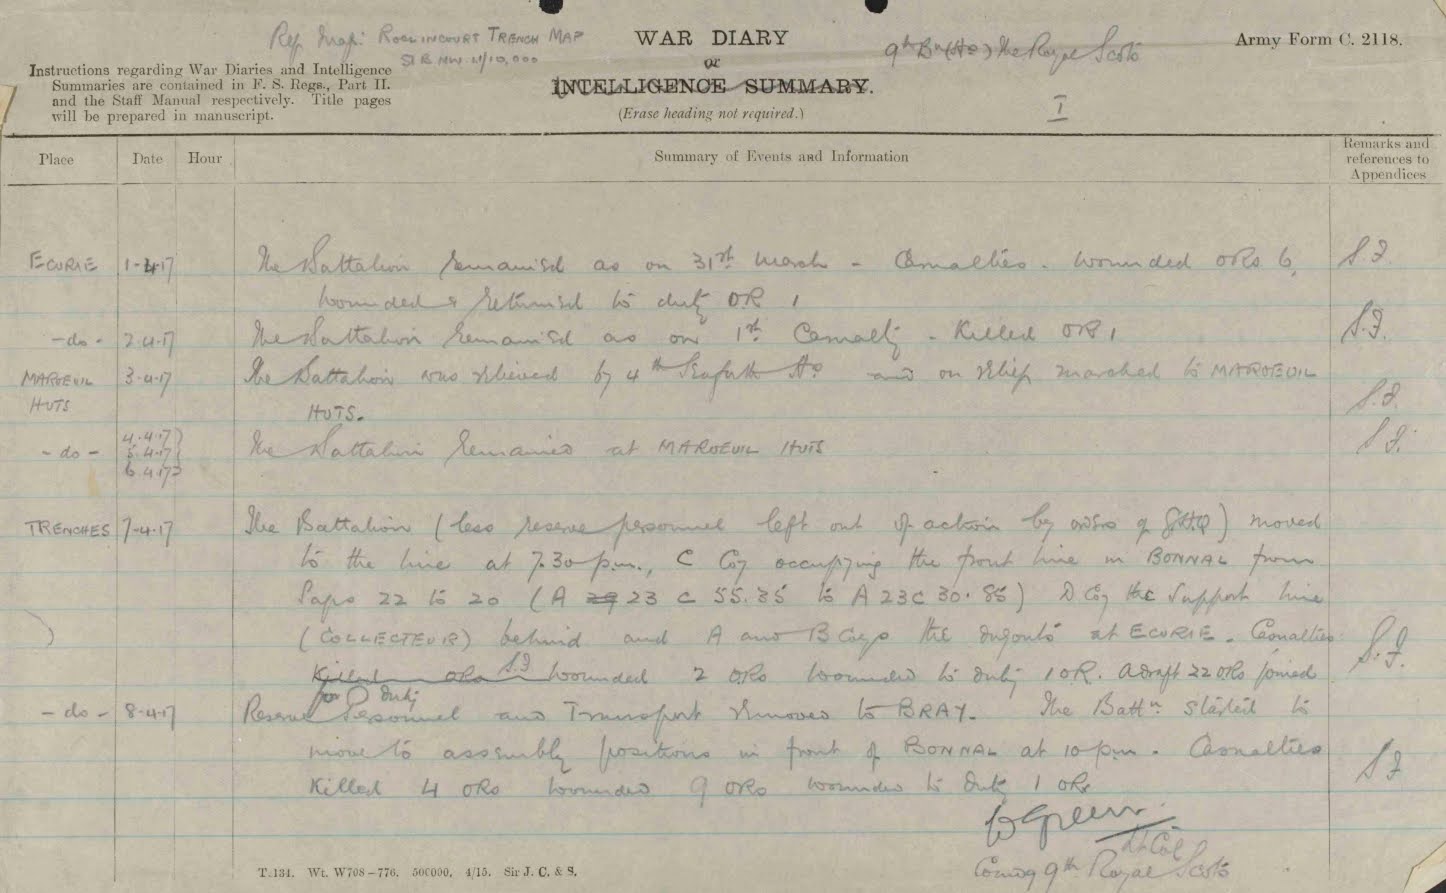 Ref Map: ROCLINCOURT TRENCH MAP
51 B NW 1/10,000
WAR DIARY
or
INTELLIGENCE SUMMARY.
(Erase heading not required.)
9th Bn (Hrs) The Royal Scots
Army Form C. 2118.
I
Instructions regarding War Diaries and Intelligence
Summaries are contained in F. S. Regs., Part II.
and the Staff Manual respectively. Title pages
will be prepared in manuscript.
Place Date Hour Summary of Events and Information Remarks and references to Appendices
ECURIE 1-4-17 The Battalion remained as on 31st March - Casualties - Wounded ORs 6,
Wounded & returned to duty OR 1
-do- 2.4.17 The Battalion remained as on 1st. Casualty - Killed OR 1
MAROEUIL 3.4.17 The Battalion was relieved by 4th Seaforth Hrs and on relief marched to MAROEUIL
HUTS HUTS.
-do- 4.4.17 The Battalion remained at MAROEUIL HUTS
5.4.17
6.4.17
TRENCHES 7-4-17 The Battalion (less reserve personnel left out of action by orders of GHQ) moved
to the line at 7.30 p.m., C Coy occupying the front line in BONNAL from
Saps 22 to 20 (A 23 C 55.35 to A 23 C 30.85) D Coy the Support line
(COLLECTEUR) behind and A and B Coys the dugouts at ECURIE. Casualties
Killed ORs wounded 2 ORs wounded to duty 1 OR. A draft 22 ORs joined
for duty
-do- 8.4.17 Reserve Personnel and Transport removed to BRAY. The Battn. started to
move to assembly positions in front of BONNAL at 10 p.m. Casualties
Killed 4 ORs wounded 9 ORs wounded to duty 1 OR.
W Green
Lt Col
Comdg 9th Royal Scots
T.134. Wt. W708-776. 500000. 4/15. Sir J. C. & S.